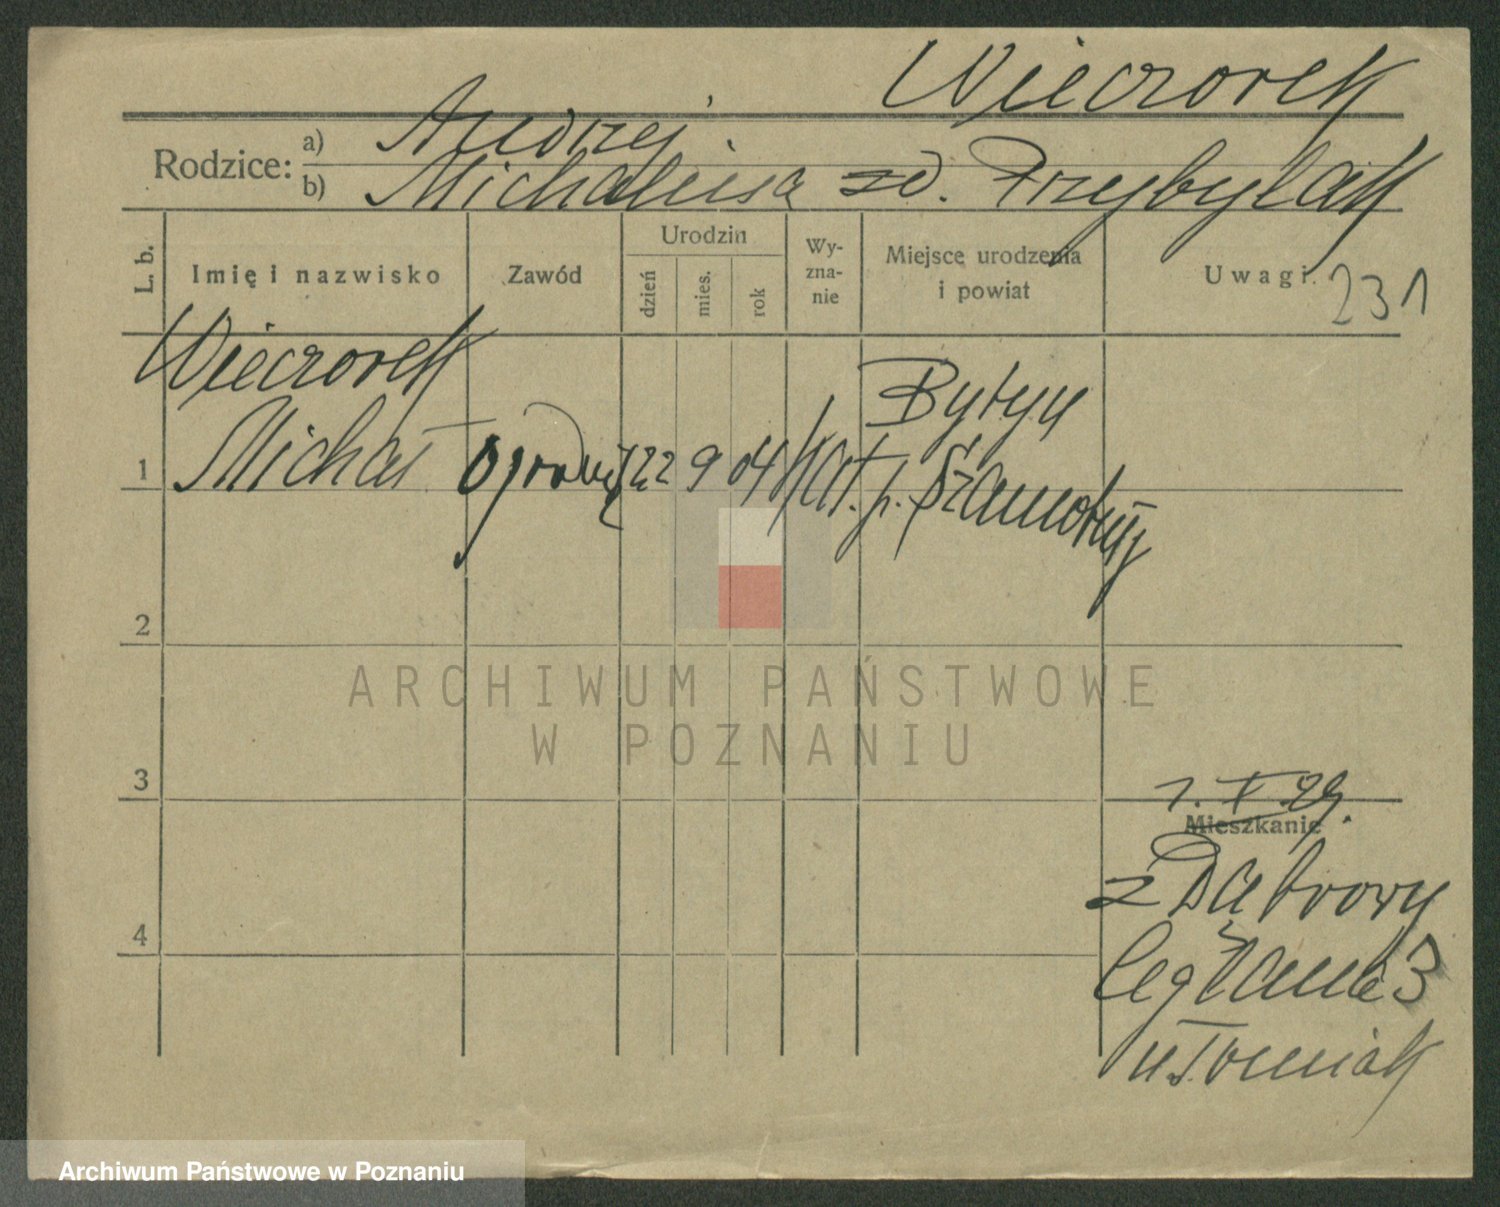 Wieczorek
Rodzice: a) Andrzej
b) Michalina zd. Przybylak
L. b. Imię i nazwisko Zawód Urodzin dzień mies. rok Wy-zna-nie Miejsce urodzenia i powiat Uwagi 231
Wieczorek Bytyń
1 Michał 22 9 04 kat. p. Szamotuły
2
ARCHIWUM PAŃSTWOWE
W POZNANIU
3
1. X. 29.
Mieszkanie
z Dąbrowy
4
3
Archiwum Państwowe w Poznaniu